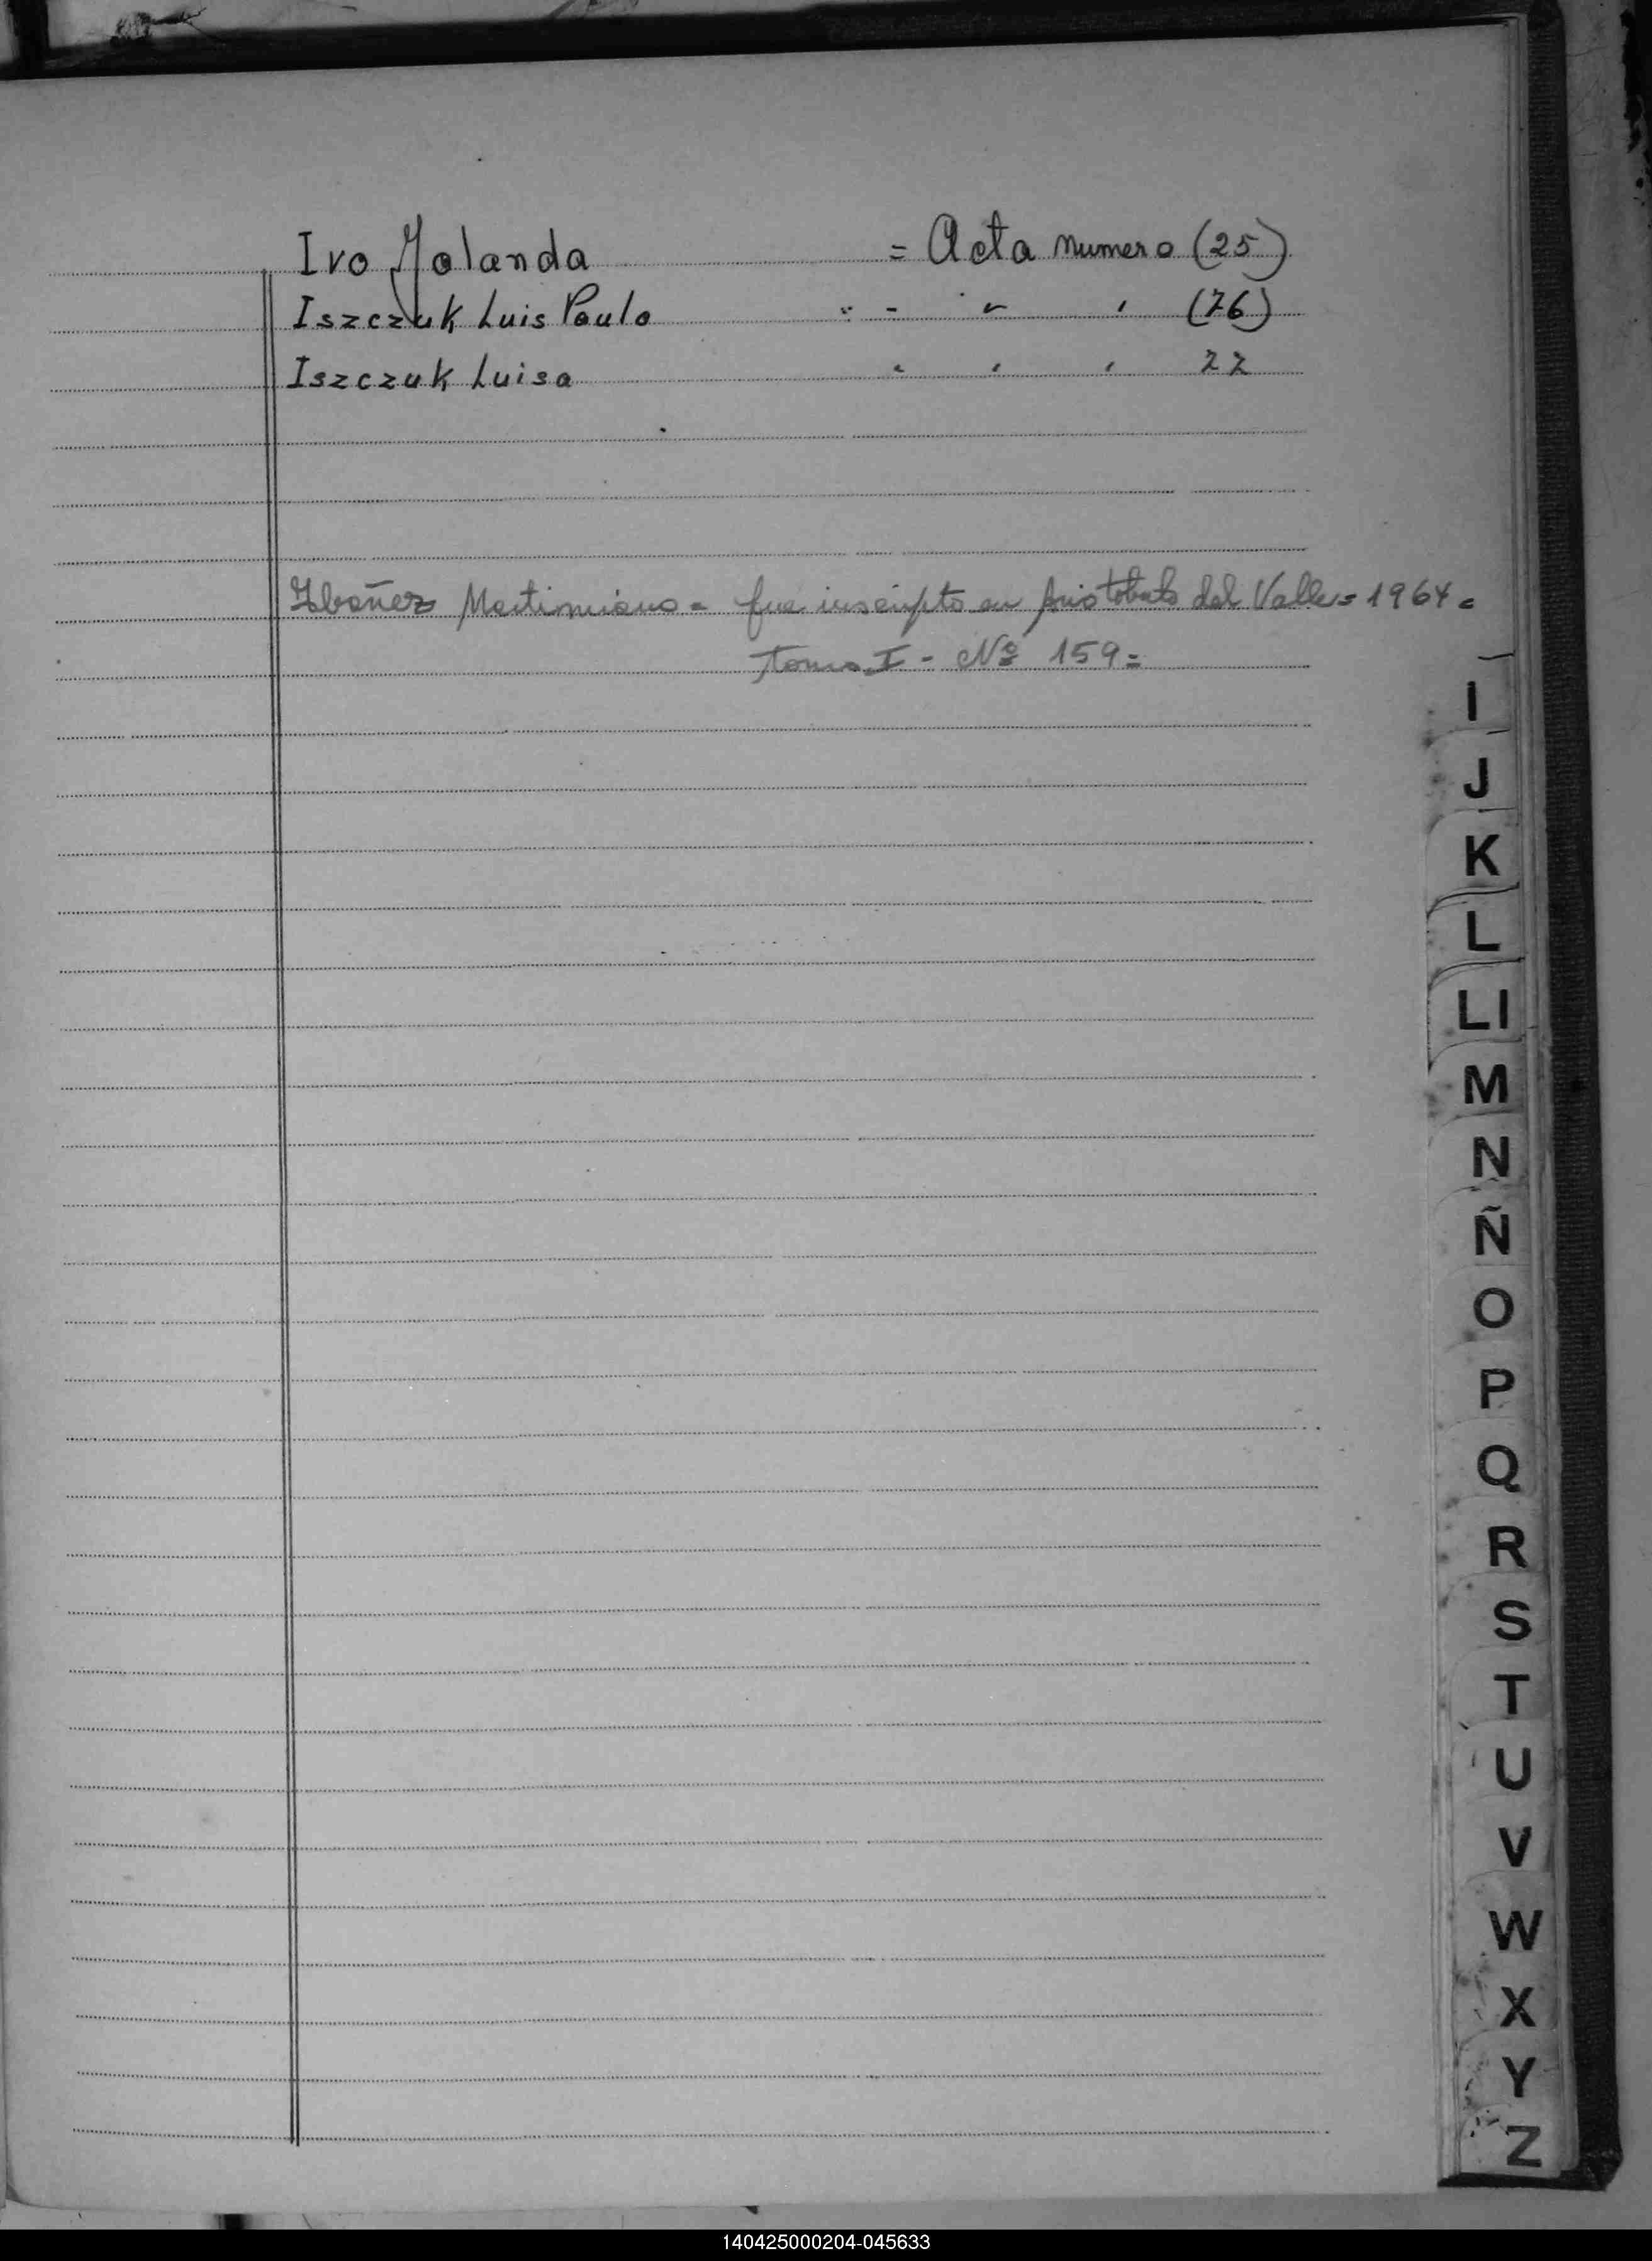 Ivo Yolanda = Acta numero (25)
Iszczuk Luis Paulo " " " (76)
Iszczuk Luisa " " " 77
Ibañez Martimiano = fue inscripto en Aristobulo del Valle = 1964 =
Tomo I - Nº 159 =
I
J
K
L
Ll
M
N
Ñ
O
P
Q
R
S
T
U
V
W
X
Y
Z
140425000204-045633